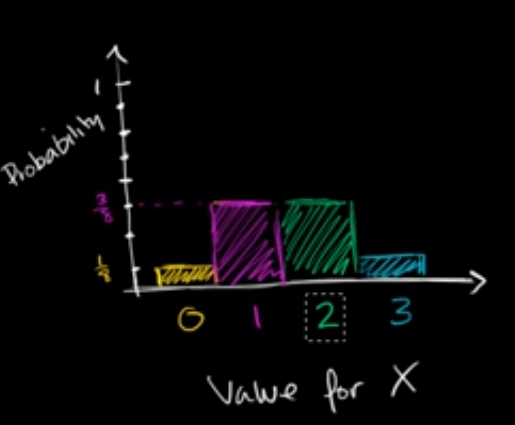 1
Probability
3/8
1/8
0 1 2 3
Value for X